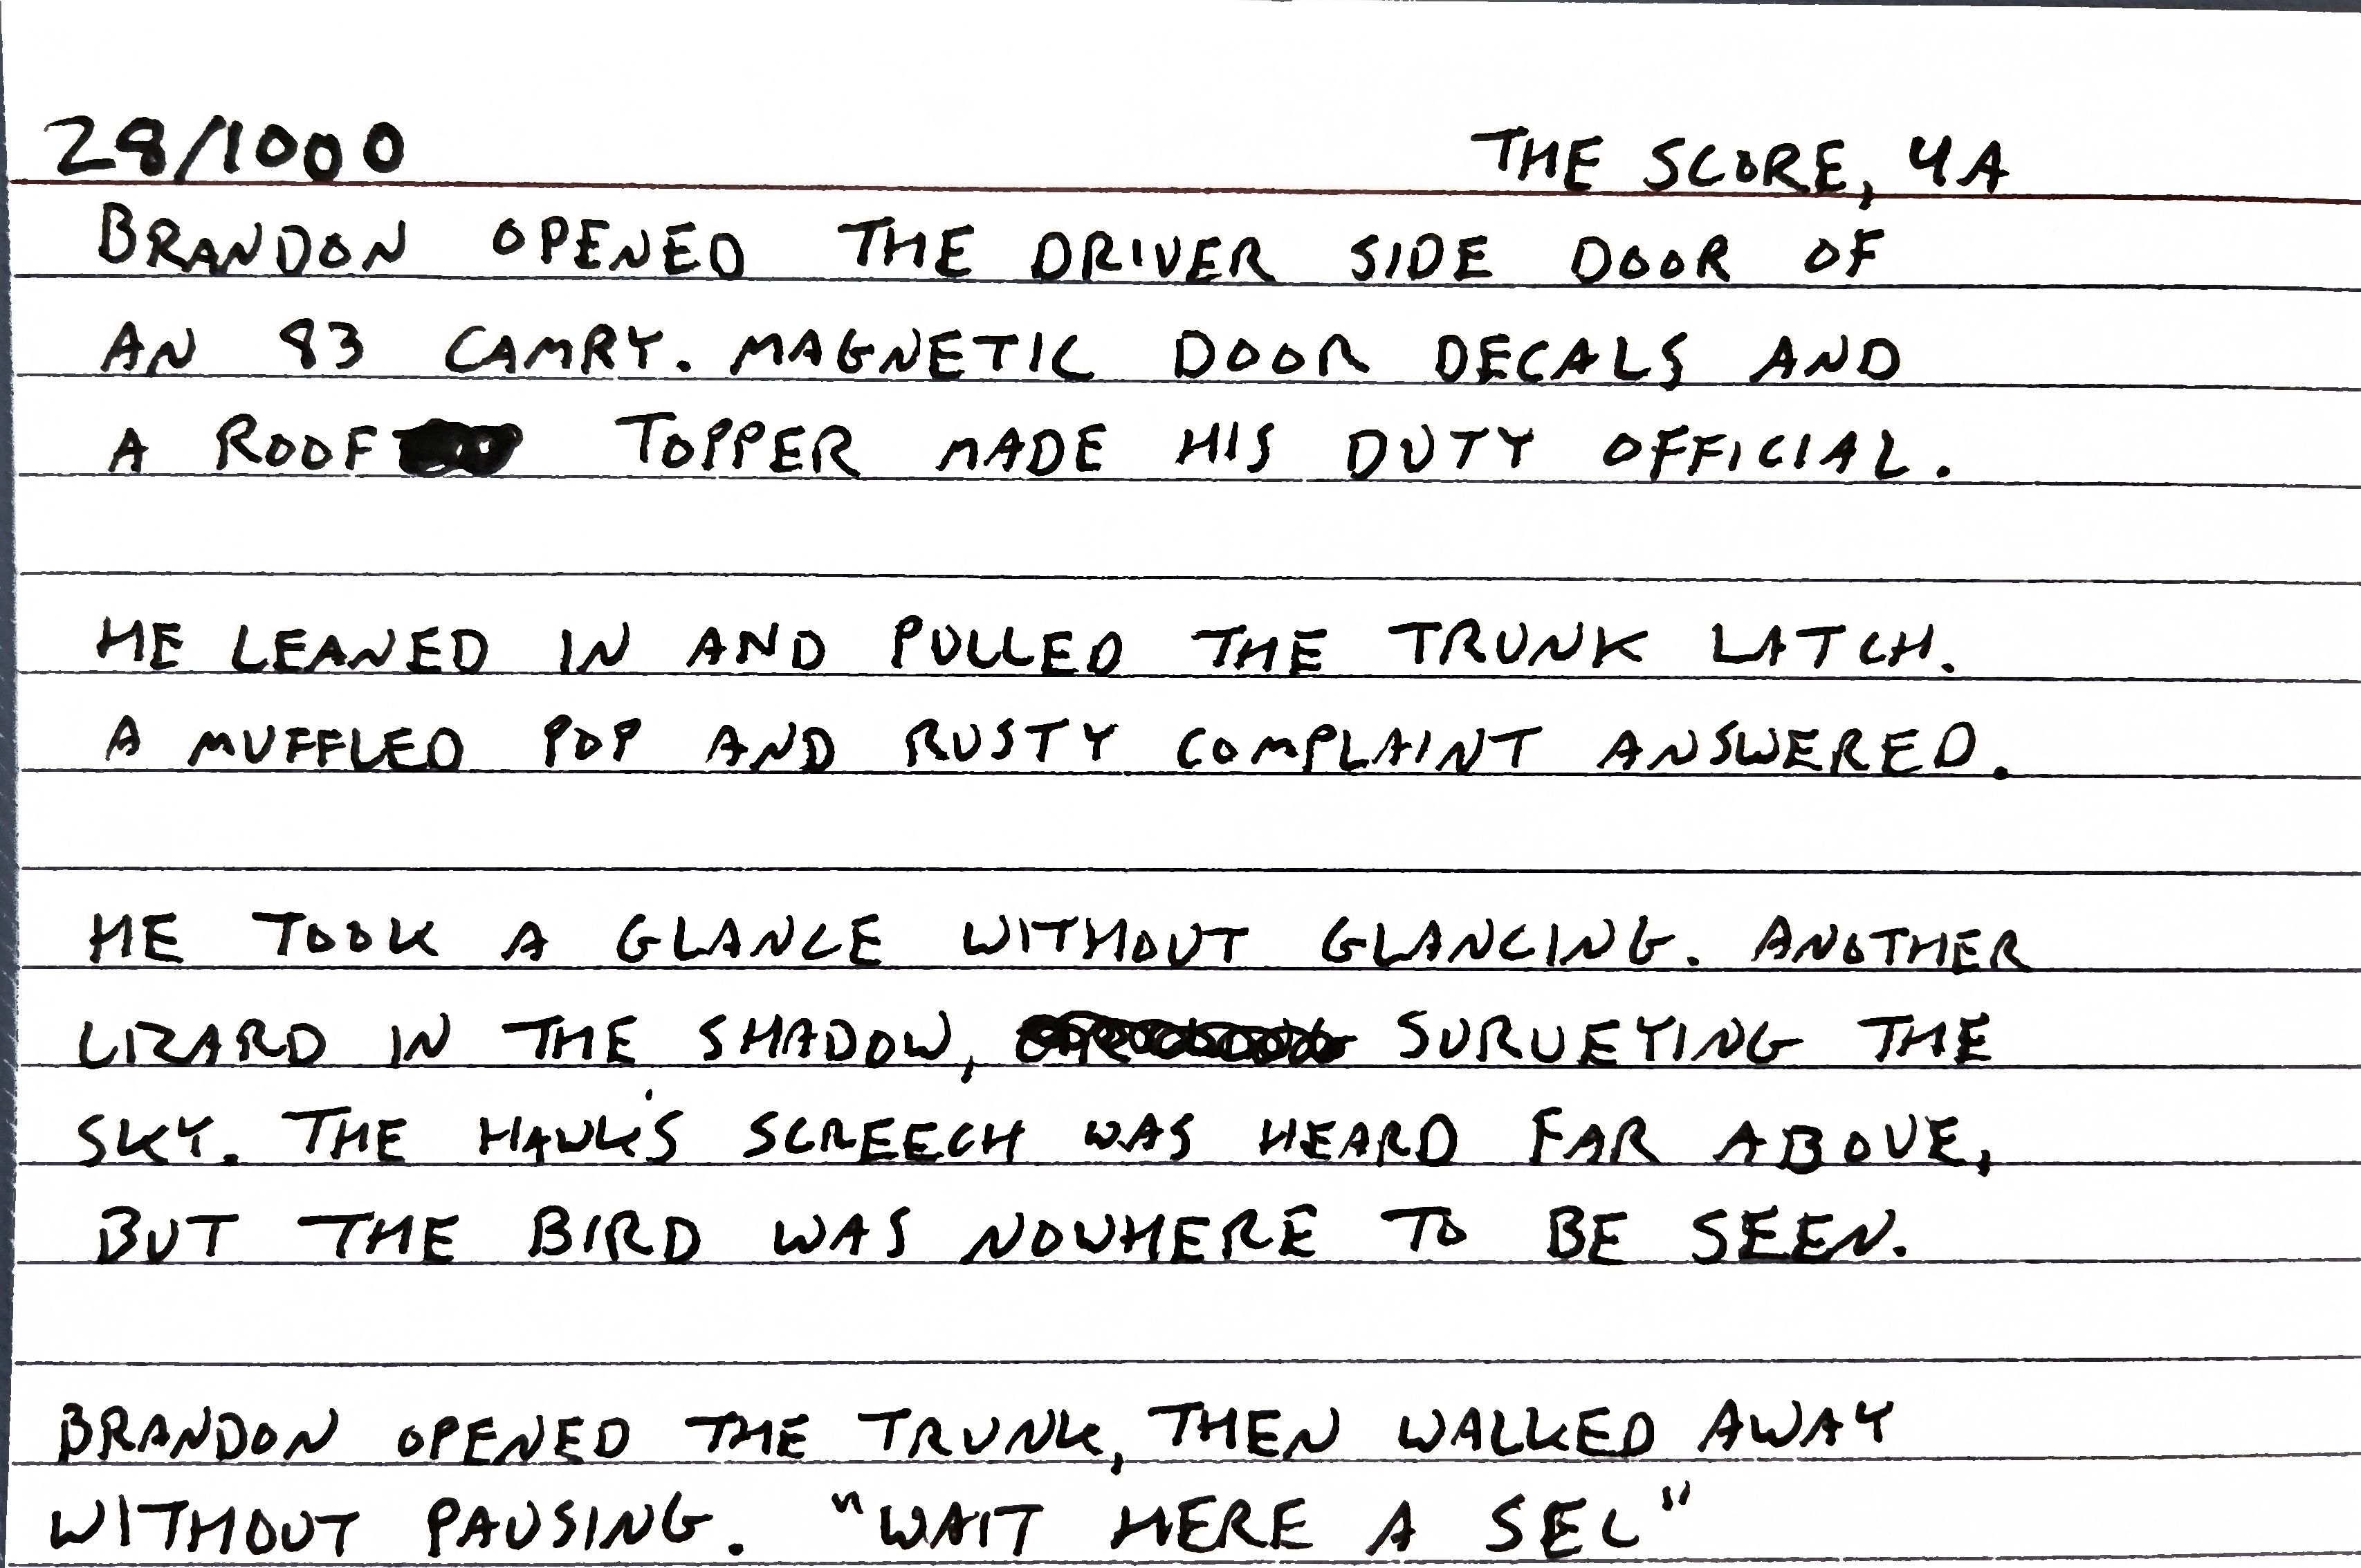 28/1000 THE SCORE, 4A
BRANDON OPENED THE DRIVER SIDE DOOR OF
AN 83 CAMRY. MAGNETIC DOOR DECALS AND
A ROOF TOPPER MADE HIS DUTY OFFICIAL.
HE LEANED IN AND PULLED THE TRUNK LATCH.
A MUFFLED POP AND RUSTY COMPLAINT ANSWERED.
HE TOOK A GLANCE WITHOUT GLANCING. ANOTHER
LIZARD IN THE SHADOW, SURVEYING THE
SKY. THE HAWK'S SCREECH WAS HEARD FAR ABOVE,
BUT THE BIRD WAS NOWHERE TO BE SEEN.
BRANDON OPENED THE TRUNK, THEN WALKED AWAY
WITHOUT PAUSING. "WAIT HERE A SEC"